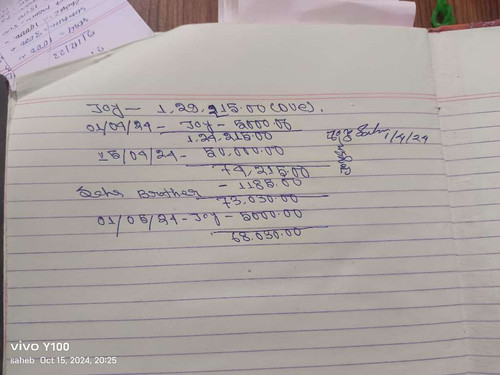 Joy - 1,29,215.00 (Due).
01/04/24 - Joy - 5000.00
1,24,215.00
1/4/24
15/04/24 - 50,000.00
74,215.00
Saha Brother - 1185.00
73,030.00
01/05/24 - Joy - 5000.00
68,030.00
vivo Y100
saheb Oct 15, 2024, 20:25